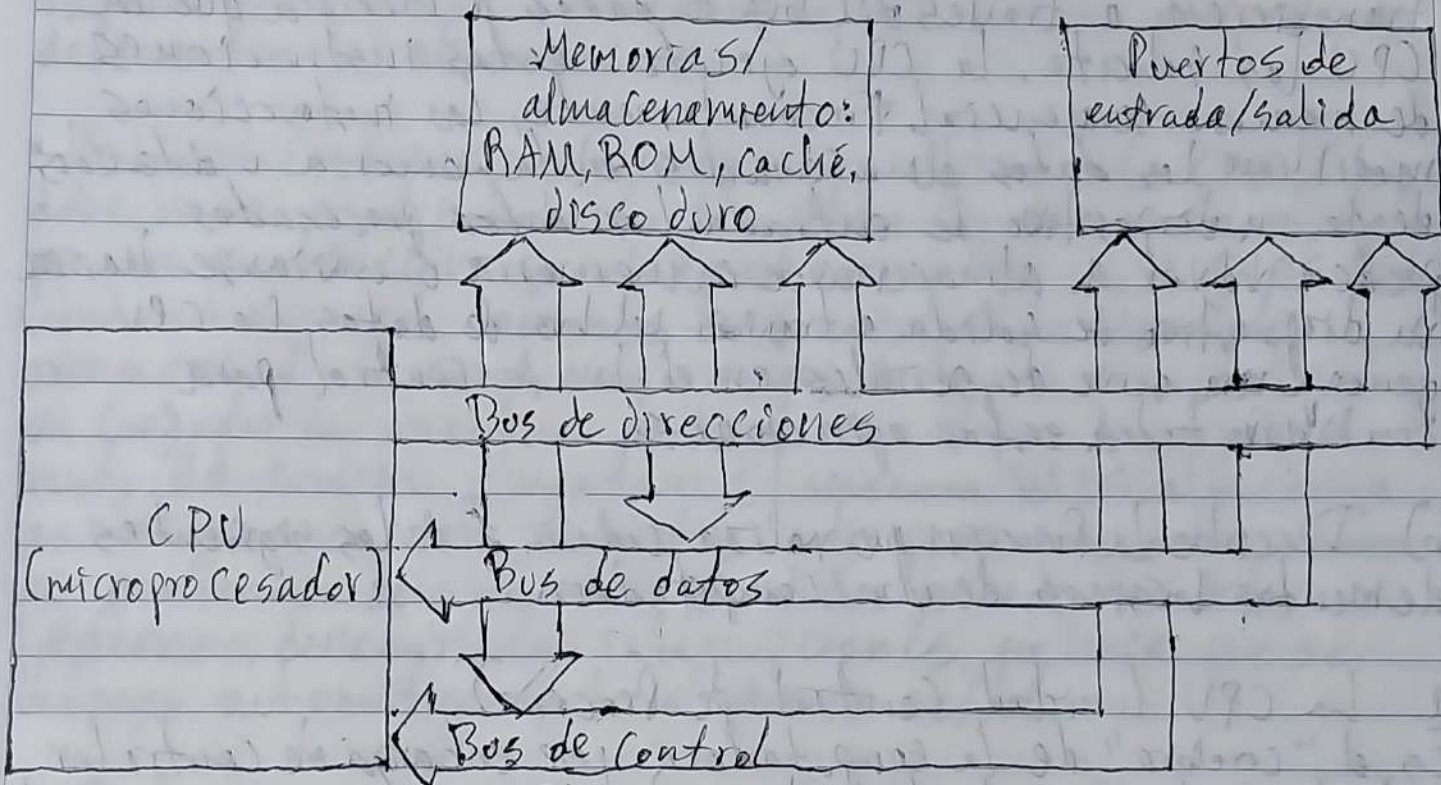 Memorias/
almacenamiento:
RAM, ROM, caché,
disco duro
Puertos de
entrada/salida
Bus de direcciones
CPU
(microprocesador)
Bus de datos
Bus de control